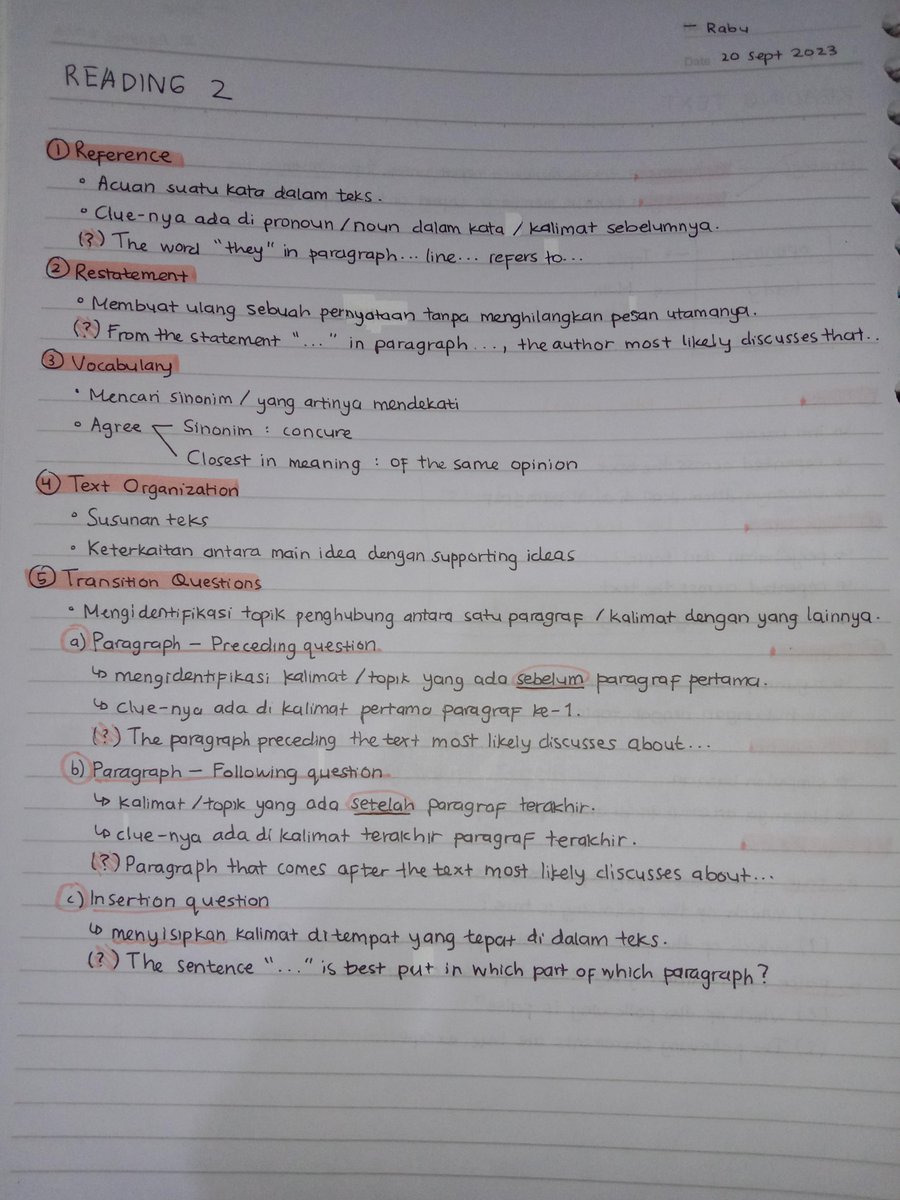 — Rabu
Date 20 Sept 2023
READING 2
① Reference
• Acuan suatu kata dalam teks.
• Clue-nya ada di pronoun / noun dalam kata / kalimat sebelumnya.
(?) The word "they" in paragraph... line... refers to...
② Restatement
• Membuat ulang sebuah pernyataan tanpa menghilangkan pesan utamanya.
(?) From the statement "..." in paragraph ..., the author most likely discusses that..
③ Vocabulary
• Mencari sinonim / yang artinya mendekati
• Agree — Sinonim : concure
Closest in meaning : of the same opinion
④ Text Organization
• Susunan teks
• Keterkaitan antara main idea dengan supporting ideas
⑤ Transition Questions
• Mengidentifikasi topik penghubung antara satu paragraf / kalimat dengan yang lainnya.
a) Paragraph — Preceding question
↳ mengidentifikasi kalimat / topik yang ada sebelum paragraf pertama.
↳ Clue-nya ada di kalimat pertama paragraf ke-1.
(?) The paragraph preceding the text most likely discusses about...
b) Paragraph — Following question
↳ Kalimat / topik yang ada setelah paragraf terakhir.
↳ clue-nya ada di kalimat terakhir paragraf terakhir.
(?) Paragraph that comes after the text most likely discusses about...
c) Insertion question
↳ menyisipkan kalimat di tempat yang tepat di dalam teks.
(?) The sentence "..." is best put in which part of which paragraph?